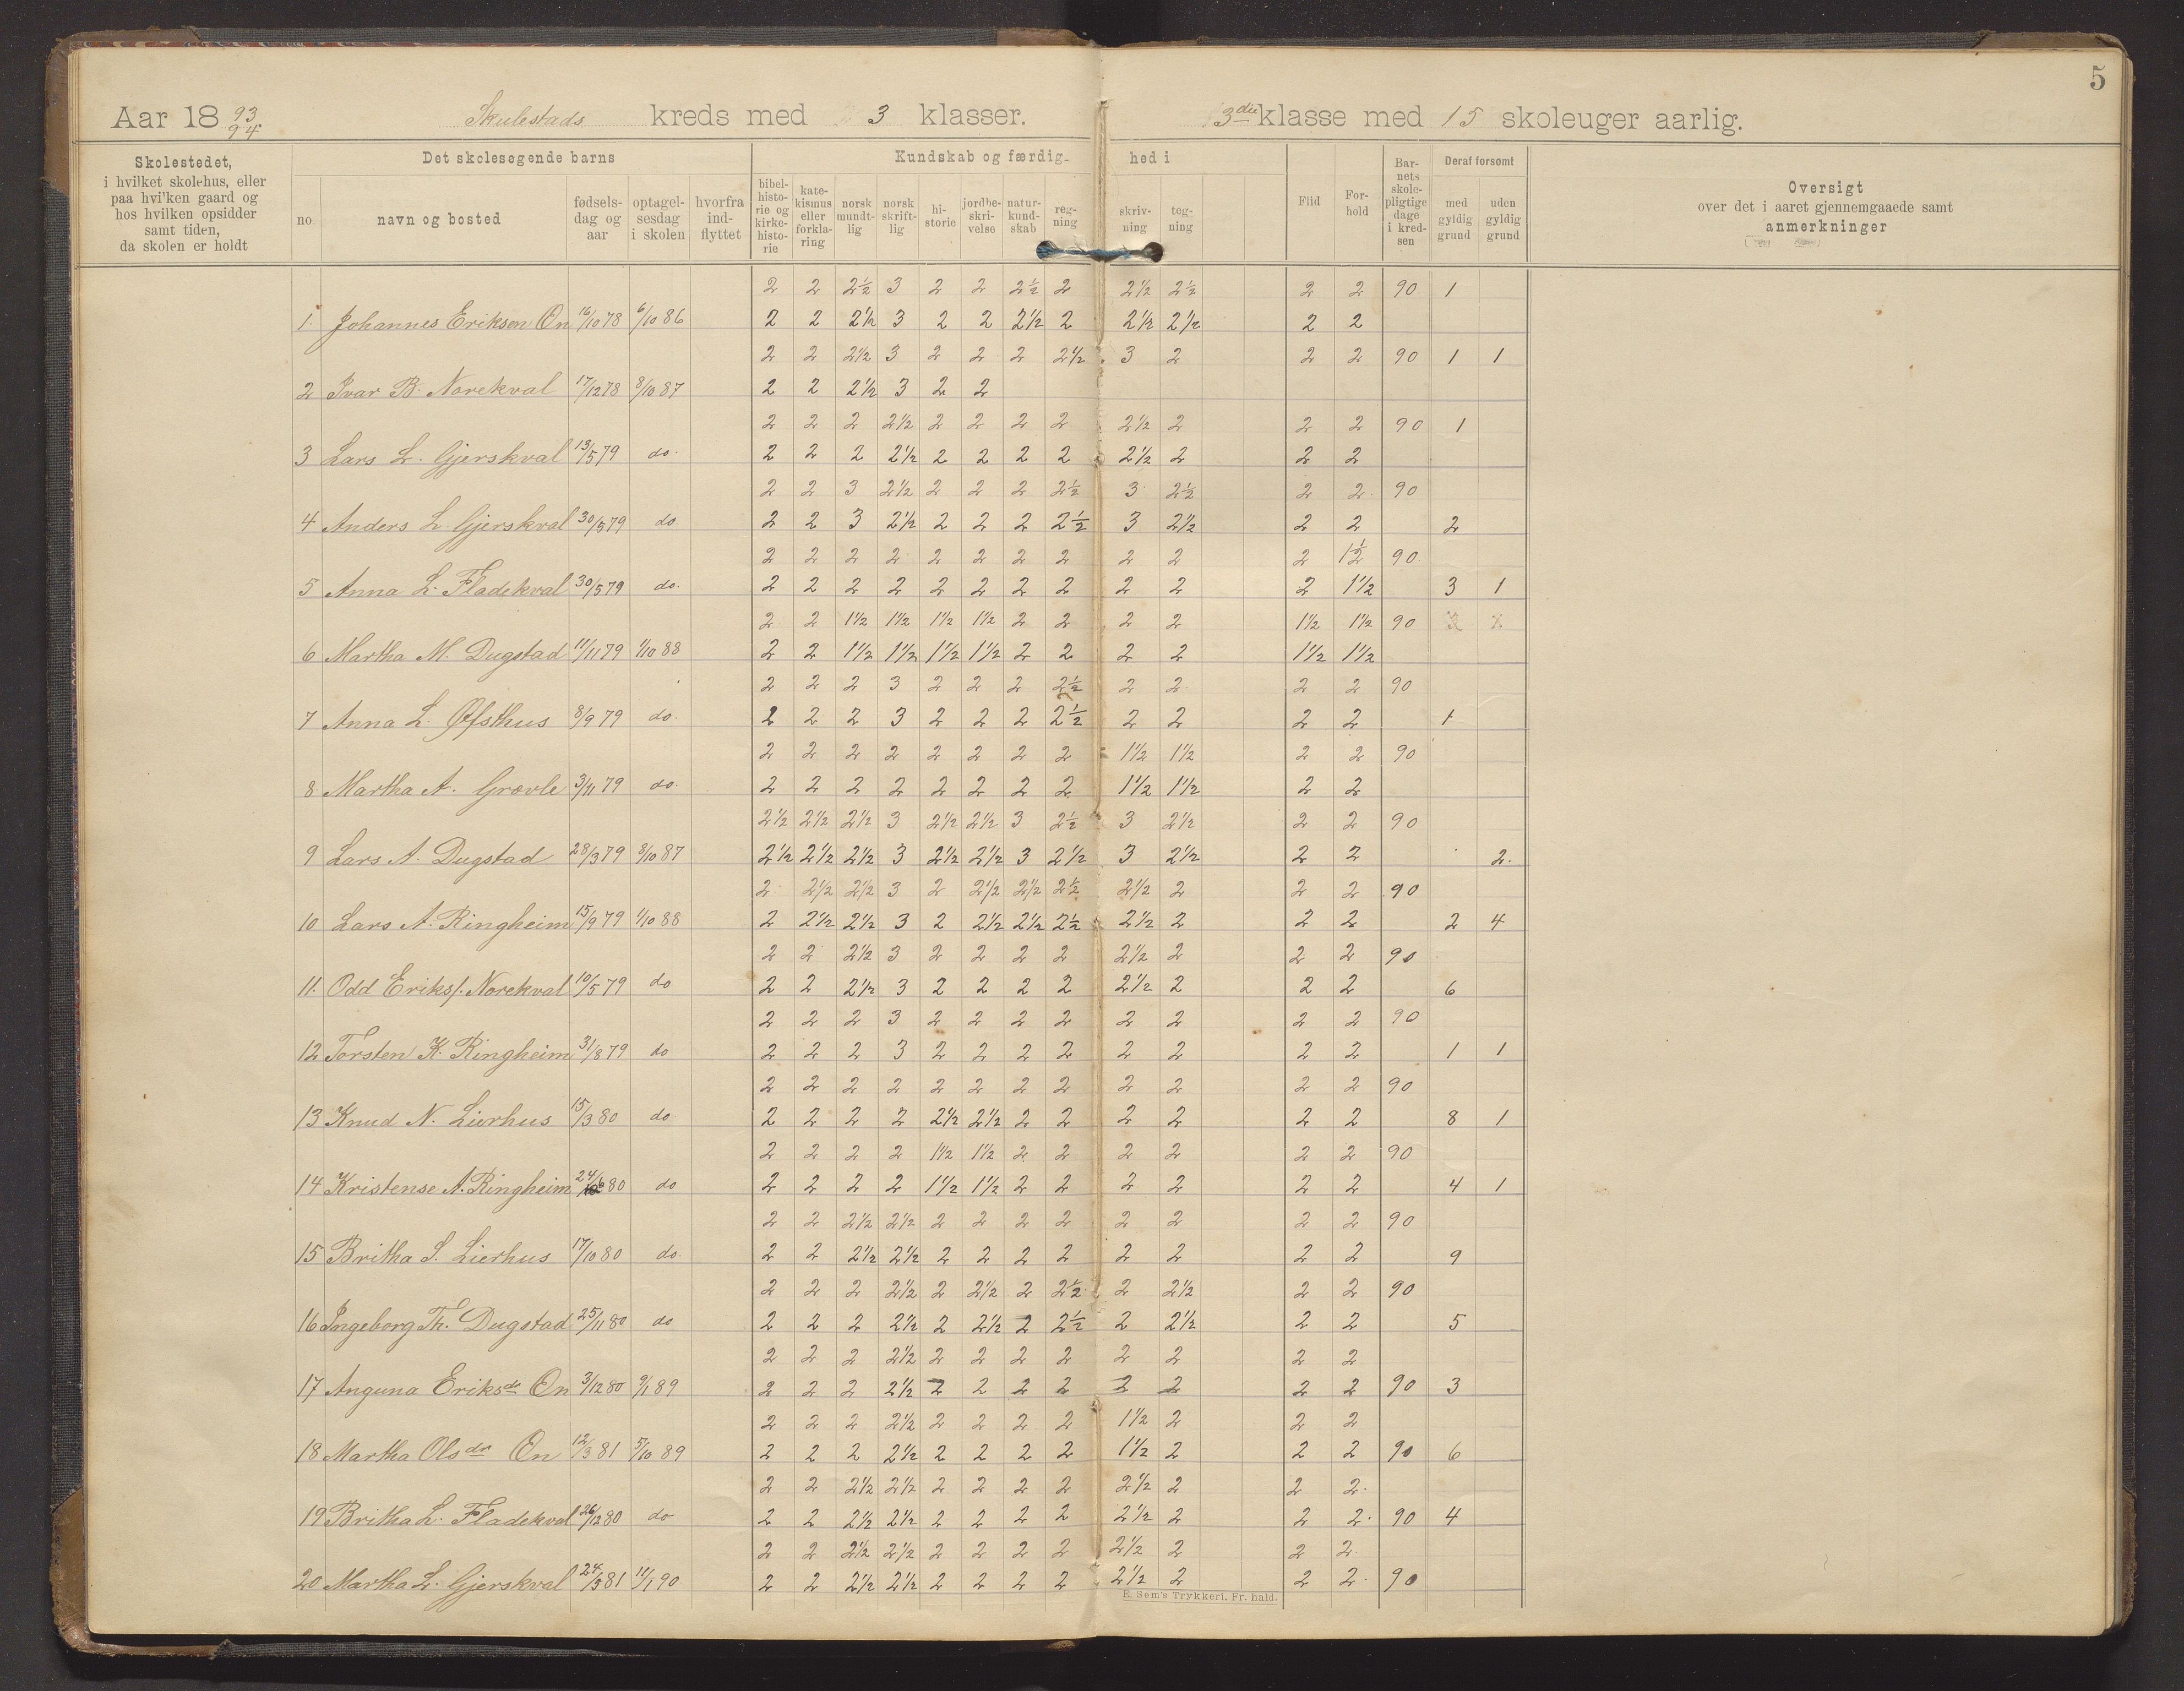 5
Aar 18 93/94. Skulestads kreds med 3 klasser. 3die klasse med 15 skoleuger aarlig.
Skolestedet, i hvilket skolehus, eller paa hvilken gaard og hos hvilken opsidder samt tiden, da skolen er holdt
Det skolesøgende barns
no. navn og bosted fødsels-dag og aar optagel-sesdag i skolen hvorfra ind-flyttet
Kundskab og færdig-hed i
bibel-histo-rie og kirke-histo-rie kate-kismus eller forkla-ring norsk mundt-lig norsk skrift-lig hi-storie jordbe-skri-velse natur-kund-skab reg-ning skriv-ning teg-ning
Flid For-hold Bar-nets skole-pligtige dage i kred-sen Deraf forsømt med gyldig grund uden gyldig grund
Oversigt over det i aaret gjennemgaaede samt anmerkninger
2 2 2½ 3 2 2 2½ 2 2½ 2½ 2 2 90 1
1. Johannes Eriksen On 16/10 78 6/10 86 2 2 2½ 3 2 2 2½ 2 2½ 2½ 2 2
2 2 2½ 3 2 2 2 2½ 3 2 2 2 90 1 1
2 Ivar B. Norekval 17/12 78 8/10 87 2 2 2½ 3 2 2
2 2 2 2½ 2 2 2 2 2½ 2 2 2 90 1
3 Lars L. Gjerskval 13/5 79 do. 2 2 2 2½ 2 2 2 2 2½ 2 2 2
2 2 3 2½ 2 2 2 2½ 3 2½ 2 2 90
4 Anders L. Gjerskval 30/5 79 do 2 2 3 2½ 2 2 2 2½ 3 2½ 2 2 2
2 2 2 2 2 2 2 2 2 2 2 1½ 90.
5 Anna L. Fladekval 30/5 79 do. 2 2 2 2 2 2 2 2 2 2 2 1½ 3 1
2 2 1½ 1½ 1½ 1½ 2 2 2 2 1½ 1½ 90
6 Martha M. Dugstad 11/11 79 1/10 88 2 2 1½ 1½ 1½ 1½ 2 2 2 2 1½ 1½
2 2 2 3 2 2 2 2½ 2 2 2 2 90
7 Anna L. Øfsthus 8/9 79 do. 2 2 2 3 2 2 2 2½ 2 2 2 2 1
2 2 2 2 2 2 2 2 1½ 1½ 2 2 90
8 Martha A. Grøvle 3/11 79 do. 2 2 2 2 2 2 2 2 1½ 1½ 2 2
2½ 2½ 2½ 3 2½ 2½ 3 2½ 3 2½ 2 2 90
9 Lars A. Dugstad 28/3 79 8/10 87 2½ 2½ 2½ 3 2½ 2½ 3 2½ 3 2½ 2 2 2.
2 2½ 2½ 3 2 2½ 2½ 2½ 2½ 2 2 2 90
10 Lars A. Ringheim 15/9 79 1/10 88 2 2½ 2½ 3 2 2½ 2½ 2½ 2½ 2 2 2 2 4
2 2 2½ 3 2 2 2 2 2½ 2 2 2 90
11. Odd Eriks/. Norekval 10/5 79 do 2 2 2½ 3 2 2 2 2 2½ 2 2 2 6
2 2 2 3 2 2 2 2 2 2 2 2 90
12 Torsten K. Ringheim 31/8 79 do 2 2 2 3 2 2 2 2 2 2 2 2 1 1
2 2 2 2 2 2 2 2 2 2 2 2 90
13 Knud N. Lierhus 15/3 80 do 2 2 2 2 2½ 2½ 2 2 2 2 2 2 8 1
2 2 2 2 1½ 1½ 2 2 2 2 2 2 90
14 Kristense A. Ringheim 24/6 80 do 2 2 2 2 1½ 1½ 2 2 2 2 2 2 4 1
2 2 2½ 2½ 2 2 2 2 2 2 2 2 90
15 Britha S. Lierhus 17/10 80 do. 2 2 2½ 2½ 2 2 2 2 2 2 2 2 9
2 2 2 2½ 2 2½ 2 2½ 2 2½ 2 2 90
16 Ingeborg Th. Dugstad 25/11 80 do 2 2 2 2½ 2 2½ 2 2½ 2 2½ 2 2 5
2 2 2 2½ 2 2 2 2 2 2 2 2
17 Anguna Eriksdr On 3/12 80 9/1 89 2 2 2 2½ 2 2 2 2 2 2 2 2 90 3
2 2 2 2½ 2 2 2 2 1½ 2 2 2
18 Martha Olsdr On 12/3 81 5/10 89 2 2 2 2½ 2 2 2 2 1½ 2 2 2 90 6
2 2 2½ 2½ 2 2 2 2 2½ 2 2 2.
19 Britha L. Fladekval 26/12 80 do 2 2 2½ 2½ 2 2 2 2 2½ 2 2 2. 90 4
2 2 2½ 2½ 2 2 2 2 2½ 2 2 2
20 Martha L. Gjerskval 24/3 81 11/1 90 2 2 2½ 2½ 2 2 2 2 2½ 2 2 2. 90
E. Sem's Trykkeri. Fr. hald.